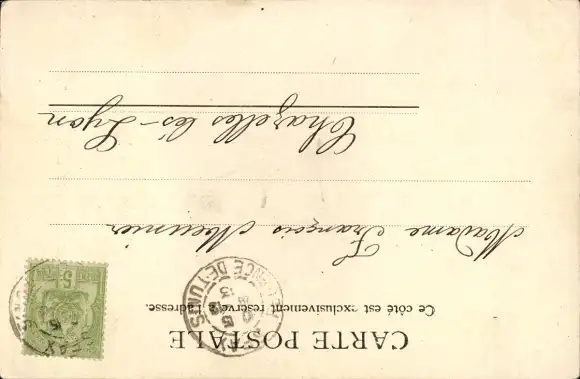 CARTE POSTALE
Ce côté est exclusivement réservé à l'adresse.
RÉGENCE DE TUNIS
5
Madame François Meunier
Chazelles lès-Lyon